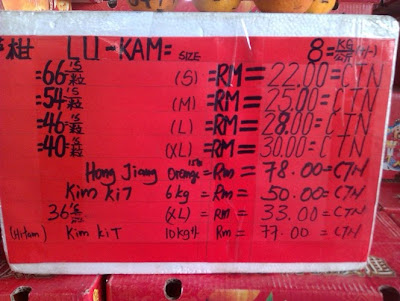 柑 LU-KAM= SIZE 8=KG(+/-)
=66'S粒 (S) =RM= 22.00=CTN
=54'S粒 (M) =RM= 25.00=CTN
=46'S粒 (L) =RM= 28.00=CTN
=40'S粒 (XL) =RM= 30.00=CTN
Hong Jiang Orange = Rm = 78.00=CTN
Kim KiT 6kg = Rm = 50.00=CTN
36'S (XL) = Rm = 33.00=CTN
(Hitam) Kim KiT 10kg Rm = 77.00=CTN